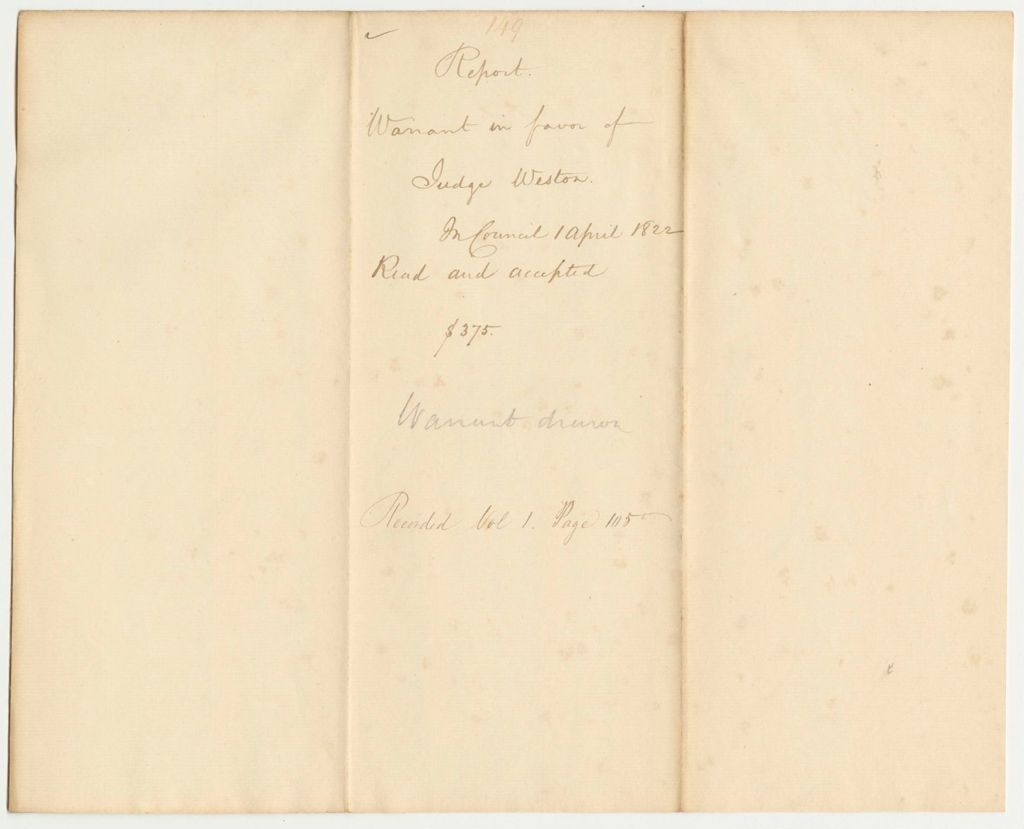 149
Report.
Warrant in favor of
Judge Weston.
In Council 1 April 1822
Read and accepted
$375.
Warrant drawn
Recorded Vol 1. Page 115